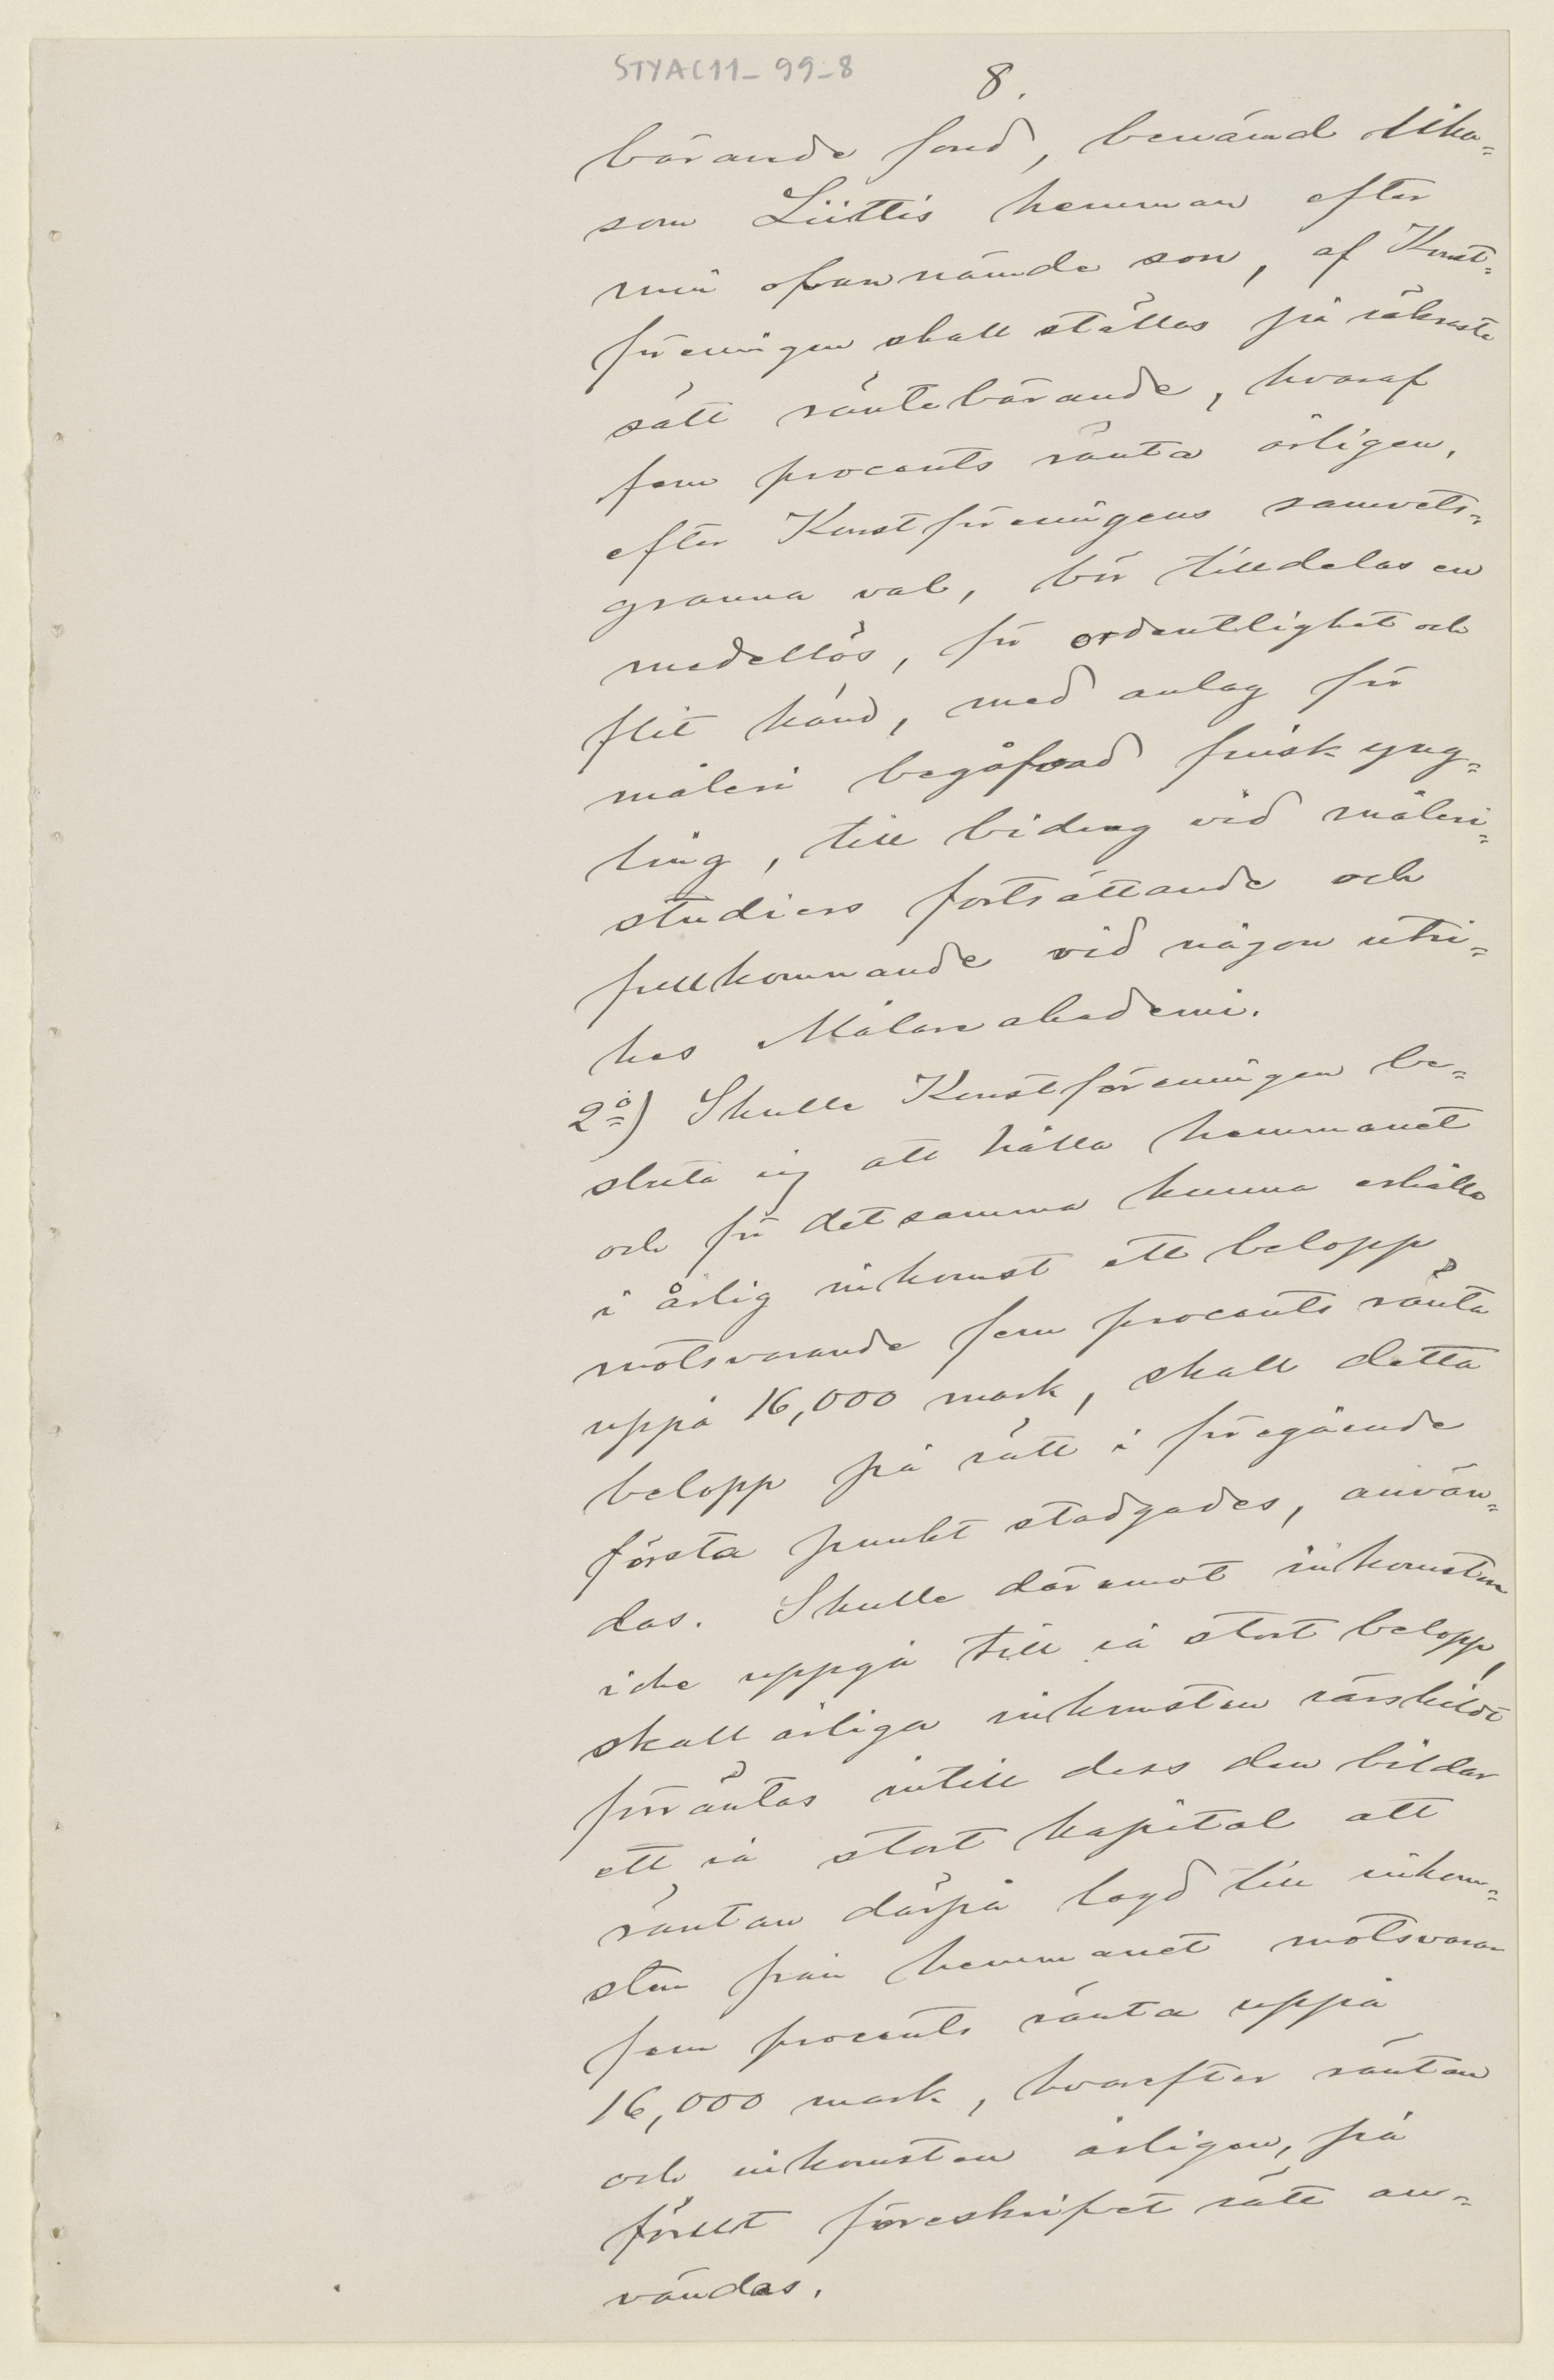 STYAC11_99_8
8.
bärande fond, benämd lika=
som Liittis hemman efter
min ofvannämde son, af Konst=
föreningen skall ställas på säkraste
sätt räntebärande, hvaraf
fem procents ränta årligen,
efter Konstföreningens samvets=
granna val, bör tilldelas en
medellös, för ordentlighet och
flit känd, med anlag för
måleri begåfvad finsk yng=
ling, till bidrag vid måleri=
studiers fortsättande och
fullkomnande vid någon utri=
kes Målareakademi.
2o) Skulle Konstföreningen be=
sluta sig att hålla hemmanet
och för detsamma kunna erhålla
i årlig inkomst ett belopp
motsvarande fem procents ränta
uppå 16,000 mark, skall detta
belopp på sätt i föregående
första punkt stadgades, använ=
das. Skulle däremot inkomsten
icke uppgå till så stort belopp,
skall årliga inkomsten särskildt
förräntas intill dess den bildar
ett så stort kapital att
räntan därpå lagd till inkom=
sten från hemmanet motsvarar
fem procents ränta uppå
16,000 mark, hvarefter räntan
och inkomsten årligen, på
förut föreskrifvet sätt an=
vändas.